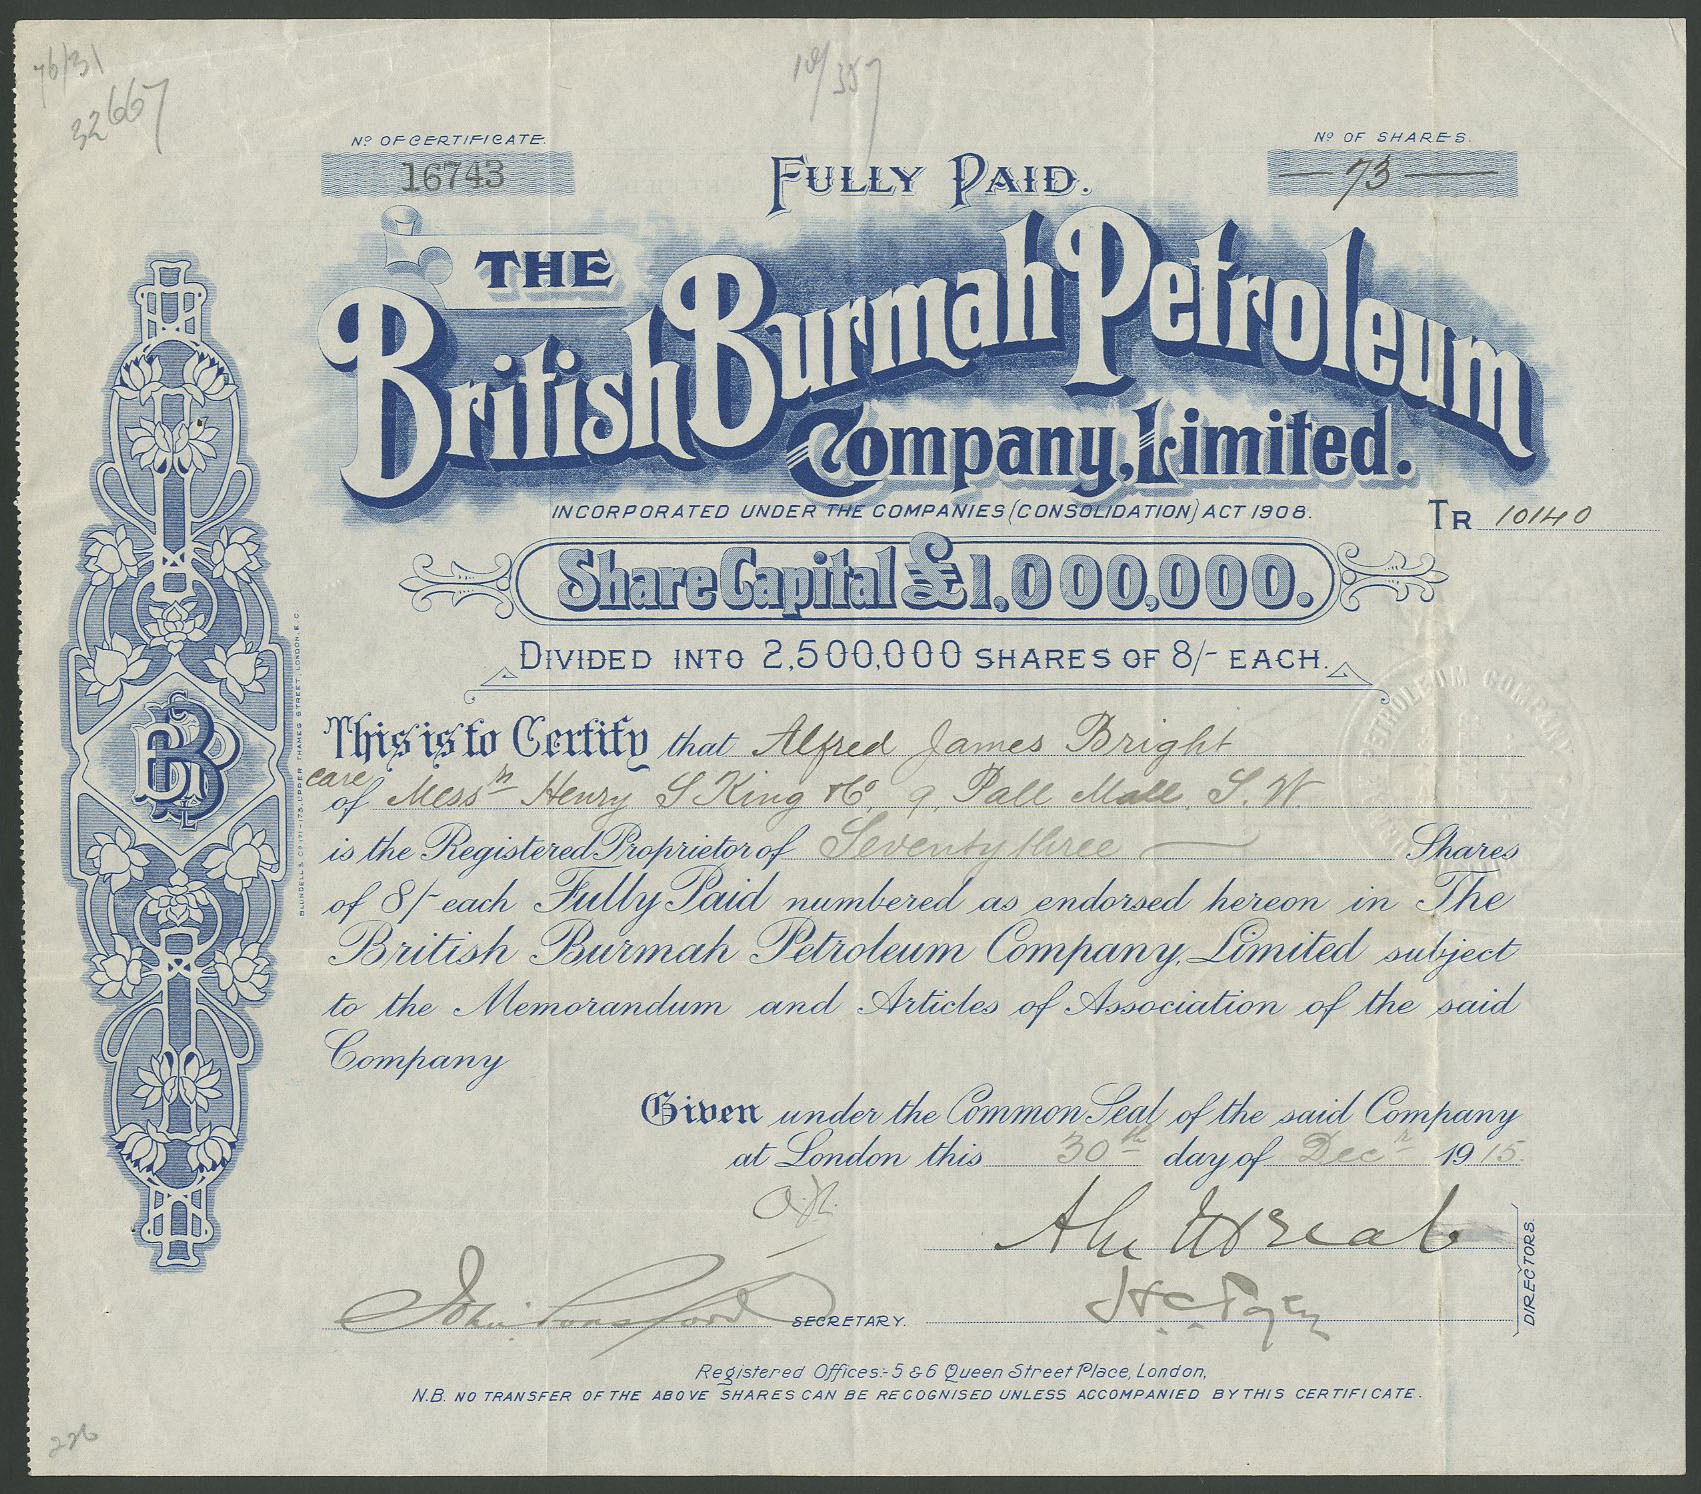 76/31
32667
10/357
No OF CERTIFICATE.
16743
No OF SHARES.
73
FULLY PAID.
THE
British Burmah Petroleum
Company, Limited.
INCORPORATED UNDER THE COMPANIES (CONSOLIDATION) ACT 1908.
TR 10140
Share Capital £1,000,000.
DIVIDED INTO 2,500,000 SHARES OF 8/- EACH.
This is to Certify that Alfred James Bright
care
of Messrs Henry S King & Co 9, Pall Mall, S.W.
is the Registered Proprietor of Seventy three Shares
of 8/- each Fully Paid numbered as endorsed hereon in The
British Burmah Petroleum Company, Limited subject
to the Memorandum and Articles of Association of the said
Company
Given under the Common Seal of the said Company
at London this 30th day of Decr 1915.
John
SECRETARY.
DIRECTORS.
Registered Offices:- 5 & 6 Queen Street Place, London,
N.B. NO TRANSFER OF THE ABOVE SHARES CAN BE RECOGNISED UNLESS ACCOMPANIED BY THIS CERTIFICATE.
226
BBPCL
BLUNDELL & Co 171-173, UPPER THAMES STREET, LONDON, E.C.
PETROLEUM COMPANY